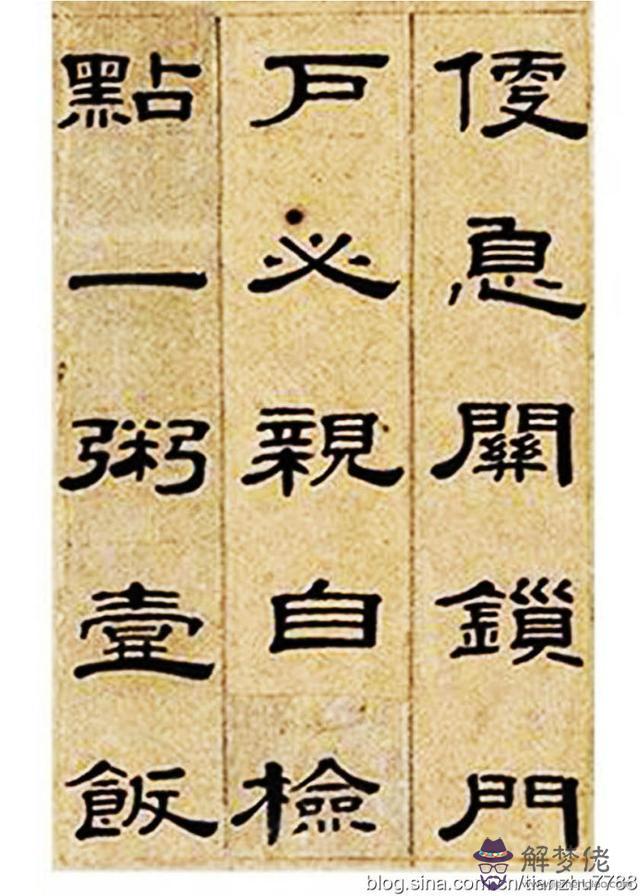 便息關鎖門
戶必親自檢
點一粥壹飯
解梦佬
blog.sina.com.cn/tianzhu7788